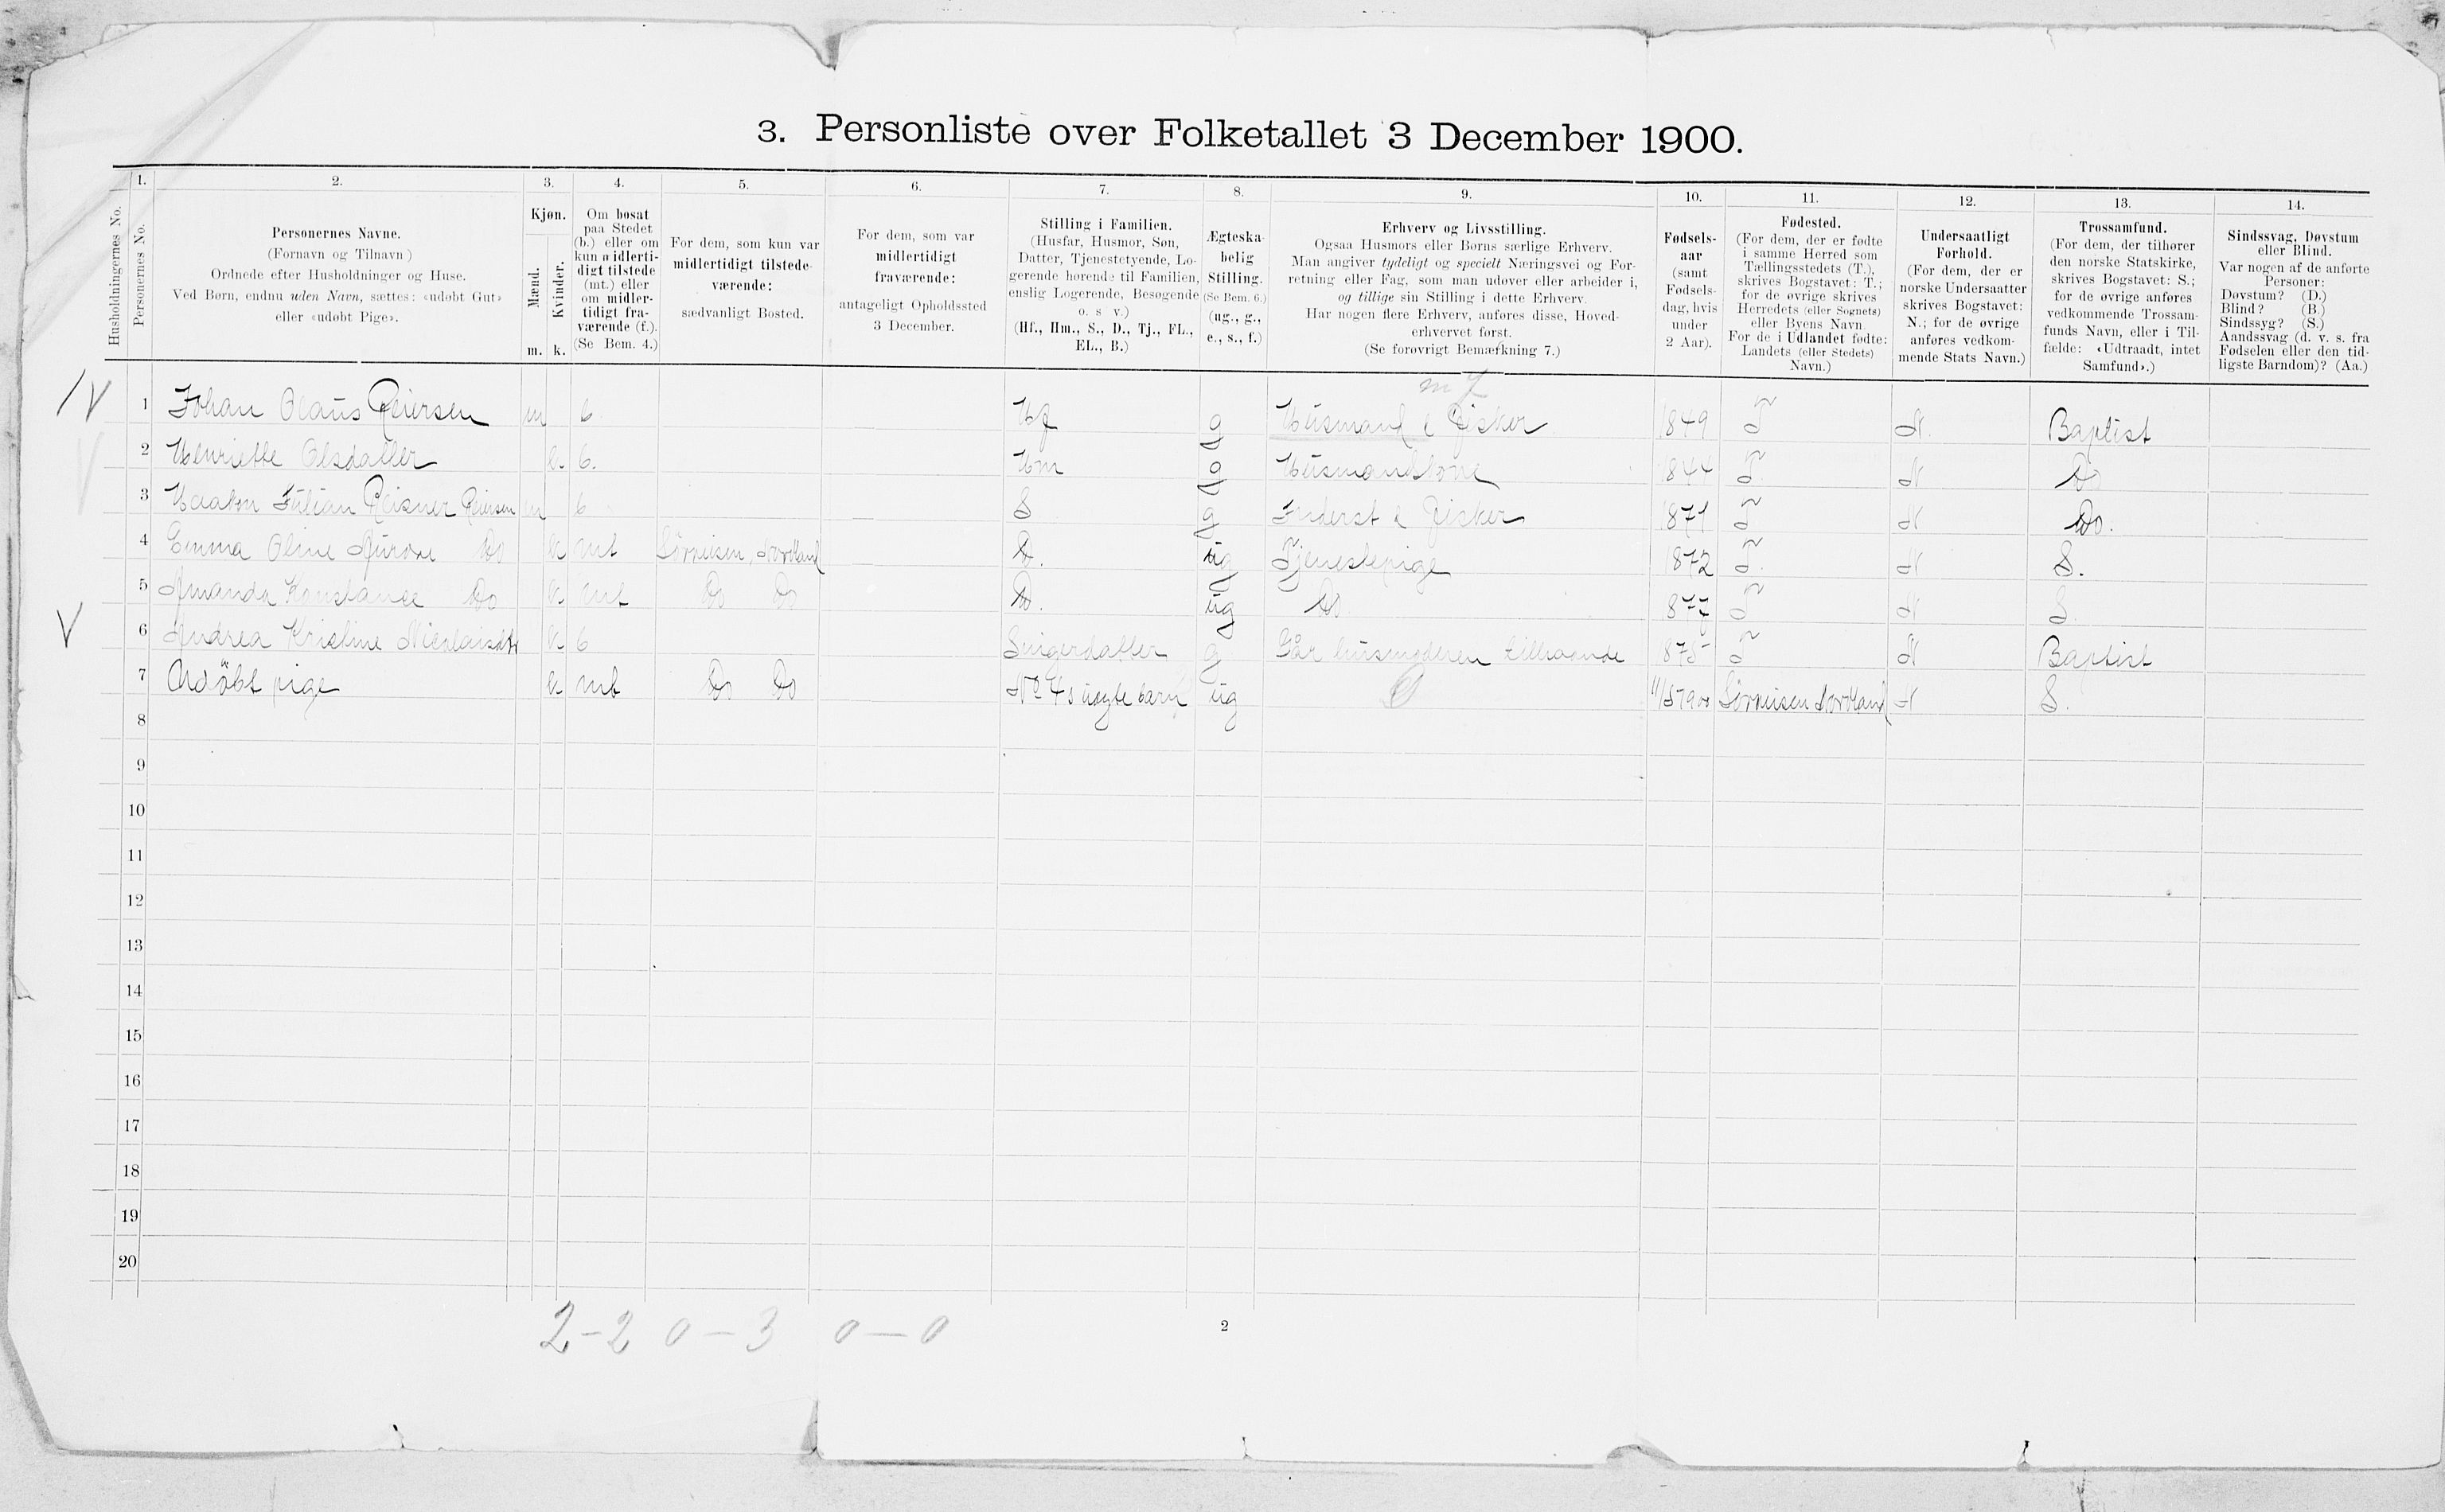 3. Personliste over Folketallet 3 December 1900.
1. 2. 3. 4. 5. 6. 7. 8. 9. 10. 11. 12. 13. 14.
Husholdningernes No.
Personernes No.
Personernes Navne.
(Fornavn og Tilnavn)
Ordnede efter Husholdninger og Huse.
Ved Børn, endnu uden Navn, sættes: «udøbt Gut»
eller «udøbt Pige».
Kjøn.
Mænd.
Kvinder.
m. k.
Om bosat
paa Stedet
(b.) eller om
kun midlerti-
digt tilstede
(mt.) eller
om midler-
tidigt fra-
værende (f.).
(Se Bem. 4.)
For dem, som kun var
midlertidigt tilstede-
værende:
sædvanligt Bosted.
For dem, som var
midlertidigt
fraværende:
antageligt Opholdssted
3 December.
Stilling i Familien.
(Husfar, Husmor, Søn,
Datter, Tjenestetyende, Lo-
gerende hørende til Familien,
enslig Logerende, Besøgende
o. s v.)
(Hf., Hm., S., D., Tj., FL.,
EL., B.)
Ægteska-
belig
Stilling.
(Se Bem. 6.)
(ug., g.,
e., s., f.)
Erhverv og Livsstilling.
Ogsaa Husmors eller Børns særlige Erhverv.
Man angiver tydeligt og specielt Næringsvei og For-
retning eller Fag, som man udøver eller arbeider i,
og tillige sin Stilling i dette Erhverv.
Har nogen flere Erhverv, anføres disse, Hoved-
erhvervet først.
(Se forøvrigt Bemærkning 7.)
Fødsels-
aar
(samt
Fødsels-
dag, hvis
under
2 Aar).
Fødested.
(For dem, der er fødte
i samme Herred som
Tællingsstedets (T.),
skrives Bogstavet: T.;
for de øvrige skrives
Herredets (eller Sognets)
eller Byens Navn.
For de i Udlandet fødte:
Landets (eller Stedets)
Navn.)
Undersaatligt
Forhold.
(For dem, der er
norske Undersaatter
skrives Bogstavet:
N.; for de øvrige
anføres vedkom-
mende Stats Navn.)
Trossamfund.
(For dem, der tilhører
den norske Statskirke,
skrives Bogstavet: S.;
for de øvrige anføres
vedkommende Trossam-
funds Navn, eller i Til-
fælde: «Udtraadt, intet
Samfund».)
Sindssvag, Døvstum
eller Blind.
Var nogen af de anførte
Personer:
Døvstum? (D.)
Blind? (B.)
Sindssyg? (S.)
Aandssvag (d. v. s. fra
Fødselen eller den tid-
ligste Barndom)? (Aa.)
1 Johan Olaus Reiersen m b Hf g Husmand & Fisker 1849 T N. Baptist
2 Henriette Olsdatter k. b. Hm g Husmandskone 1844 T. N Do
3 Haakon Julian Reisner Reiersen m b S g Inderst & Fisker 1871 T N Do.
4 Emma Oline Aurore Do k mt Sørreisen, Nordland D. ug Tjenestepige 1872 T. N S.
5 Amanda Konstanse Do k mt Do Do D. ug Do 1877 T N S.
6 Andrea Kristine Nicolaisdtr k b Svigerdatter g Går husmoderen tilhaande 1875 T N Baptist
7 Udöbt pige k mt Do Do No 4s uægte barn ug 11/5 1900 Sørreisen Nordland N S.
8
9
10
11
12
13
14
15
16
17
18
19
20
2-2 0-3 0-0
2